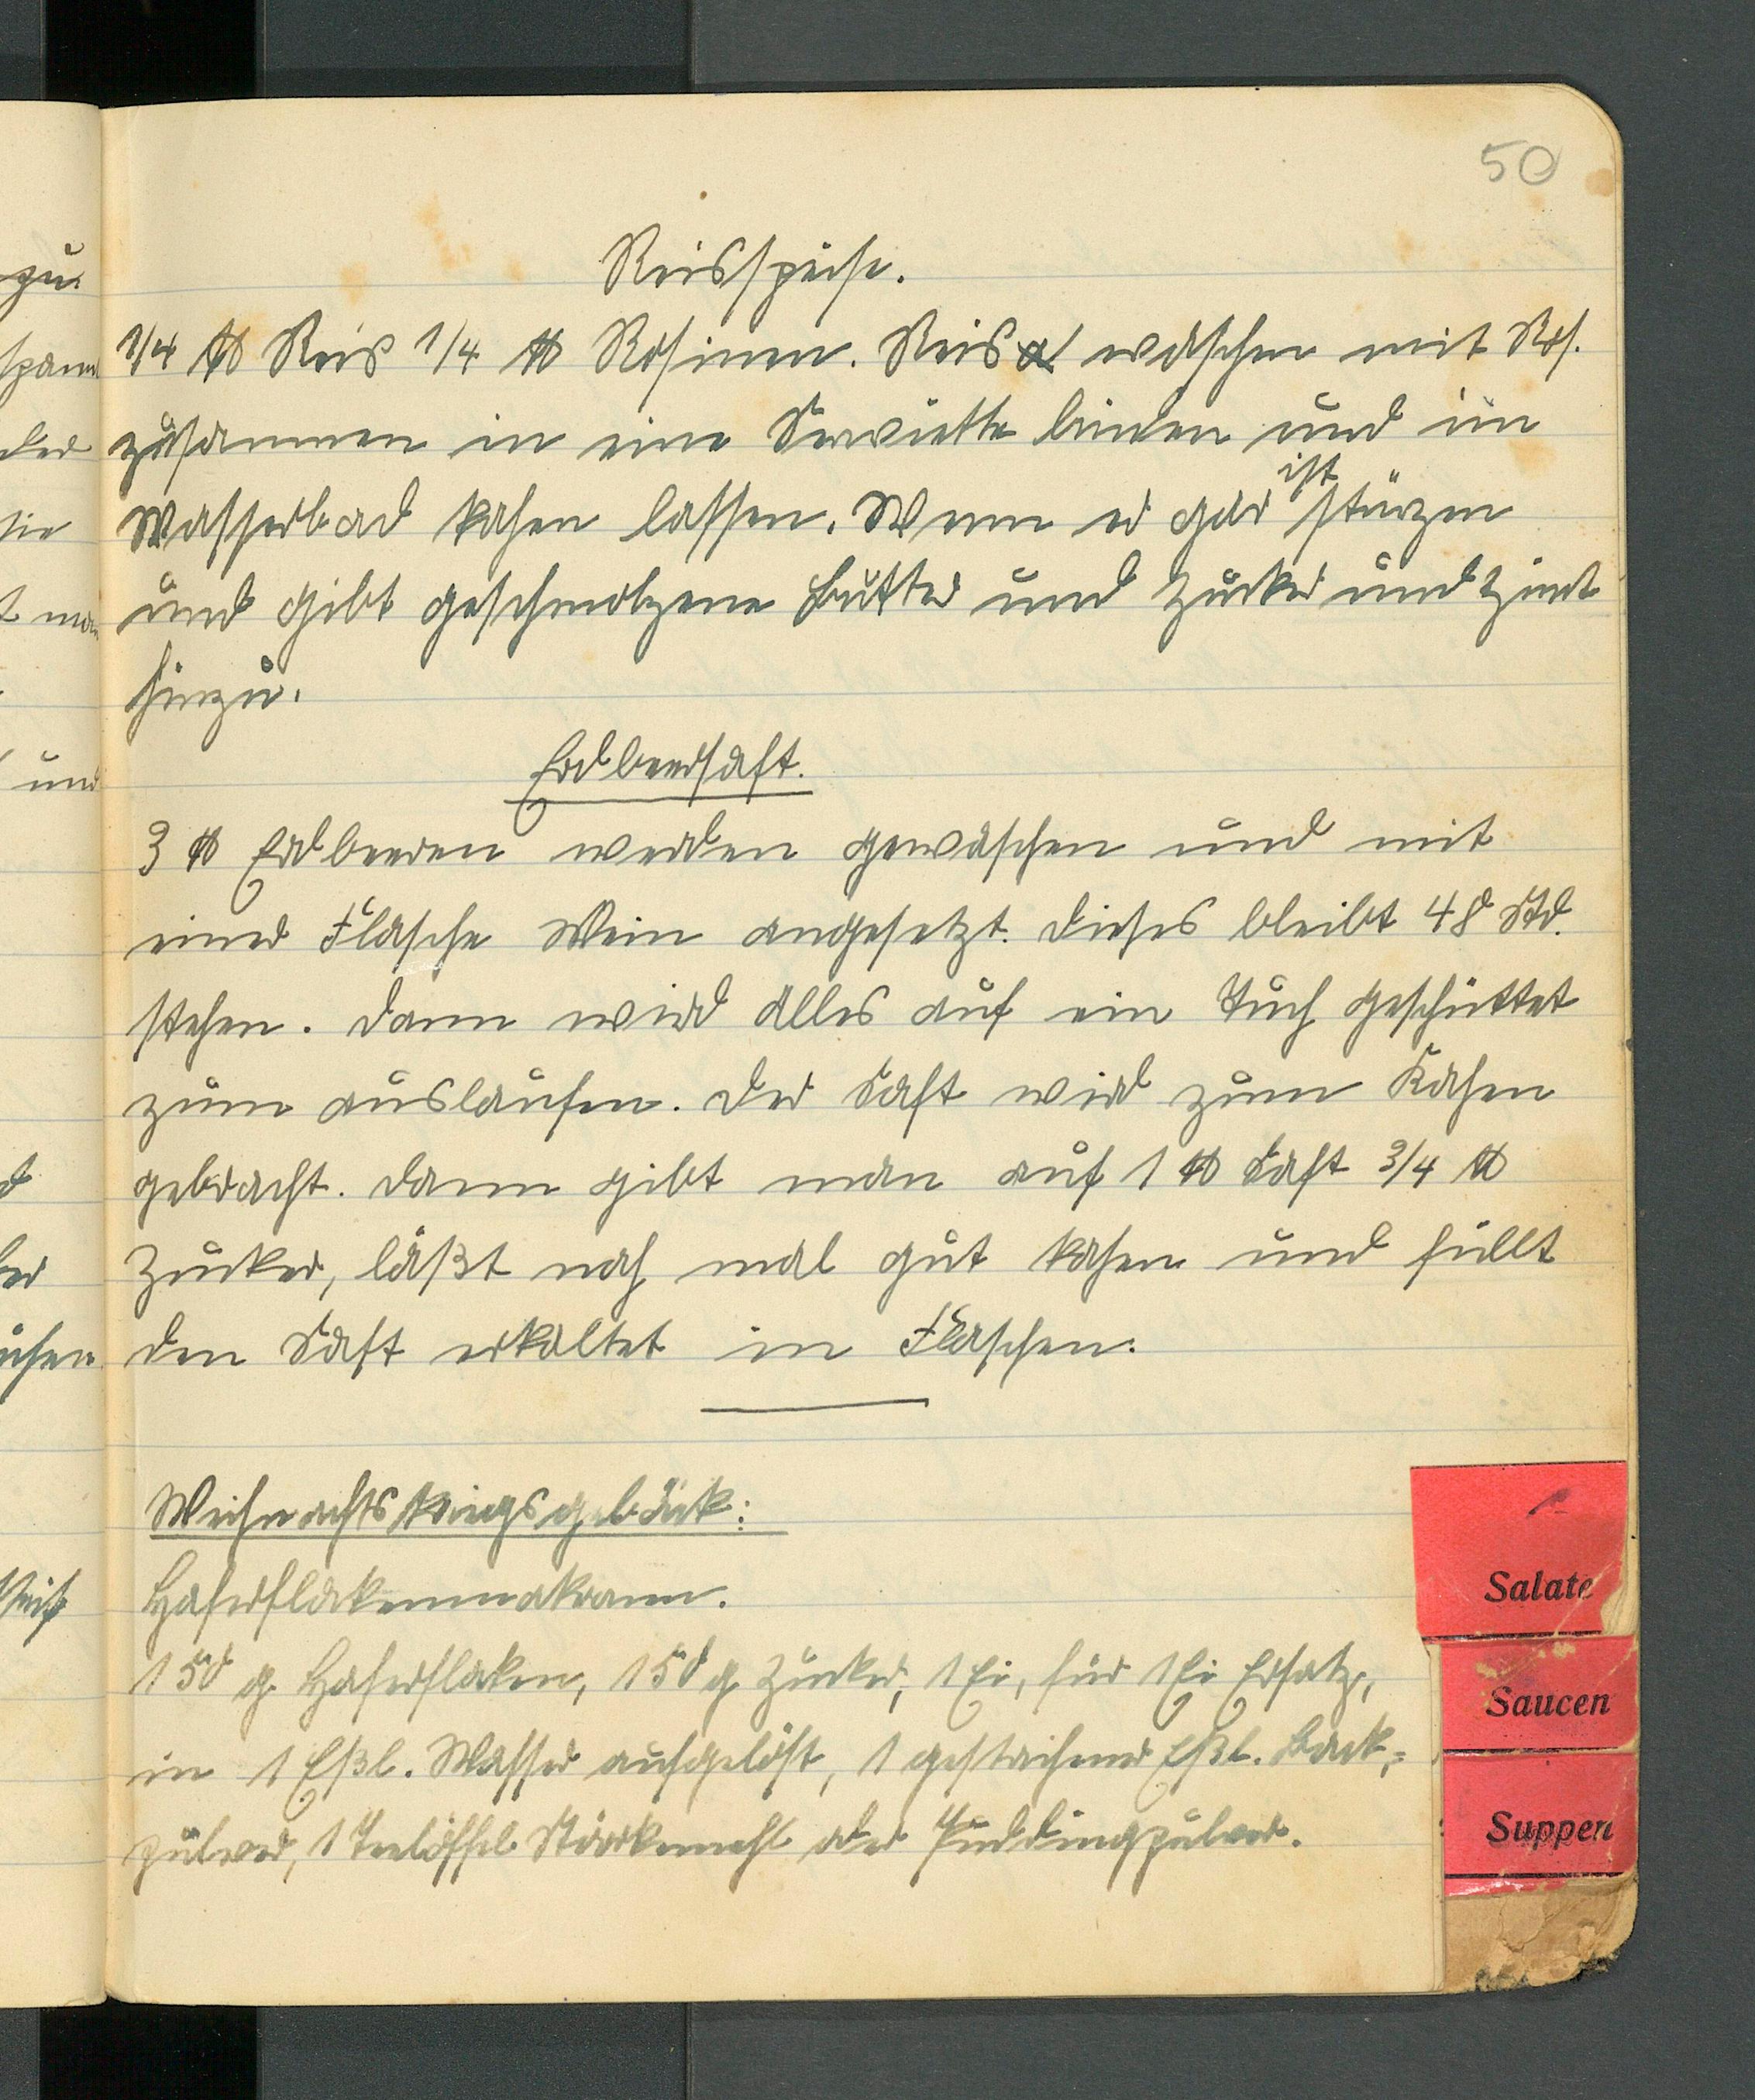 50
Reisspeise.
1/4 ℔ Reis 1/4 ℔ Rosinen. Reis waschen mit Ros.
zusammen in eine Serviette binden und im
Wasserbad kochen lassen. Wenn er gar ist stürzen
und gibt geschmolzene Butter und Zucker und Zimt
hinzu.
Erdbeersaft.
3 ℔ Erdbeeren werden gewaschen und mit
einer Flasche Wein angesetzt. Dieses bleibt 48 Std.
stehen. Dann wird alles auf ein Tuch geschüttet
zum auslaufen. Der Saft wird zum Kochen
gebracht. Dann gibt man auf 1 ℔ Saft 3/4 ℔
Zucker, läßt noch mal gut kochen und füllt
den Saft erkaltet in Flaschen.
Weihnachtskriegsgebäck:
Haferflokenmakronen.
150 g Haferfloken, 150 g Zucker, 1 Ei, für 1 Ei Ersatz,
in 1 Eßl. Wasser aufgelöst, 1 gestrichener Eßl. Back-
pulver, 1 Teelöffel Stärkemehl oder Puddingpulver.
Salate
Saucen
Suppen